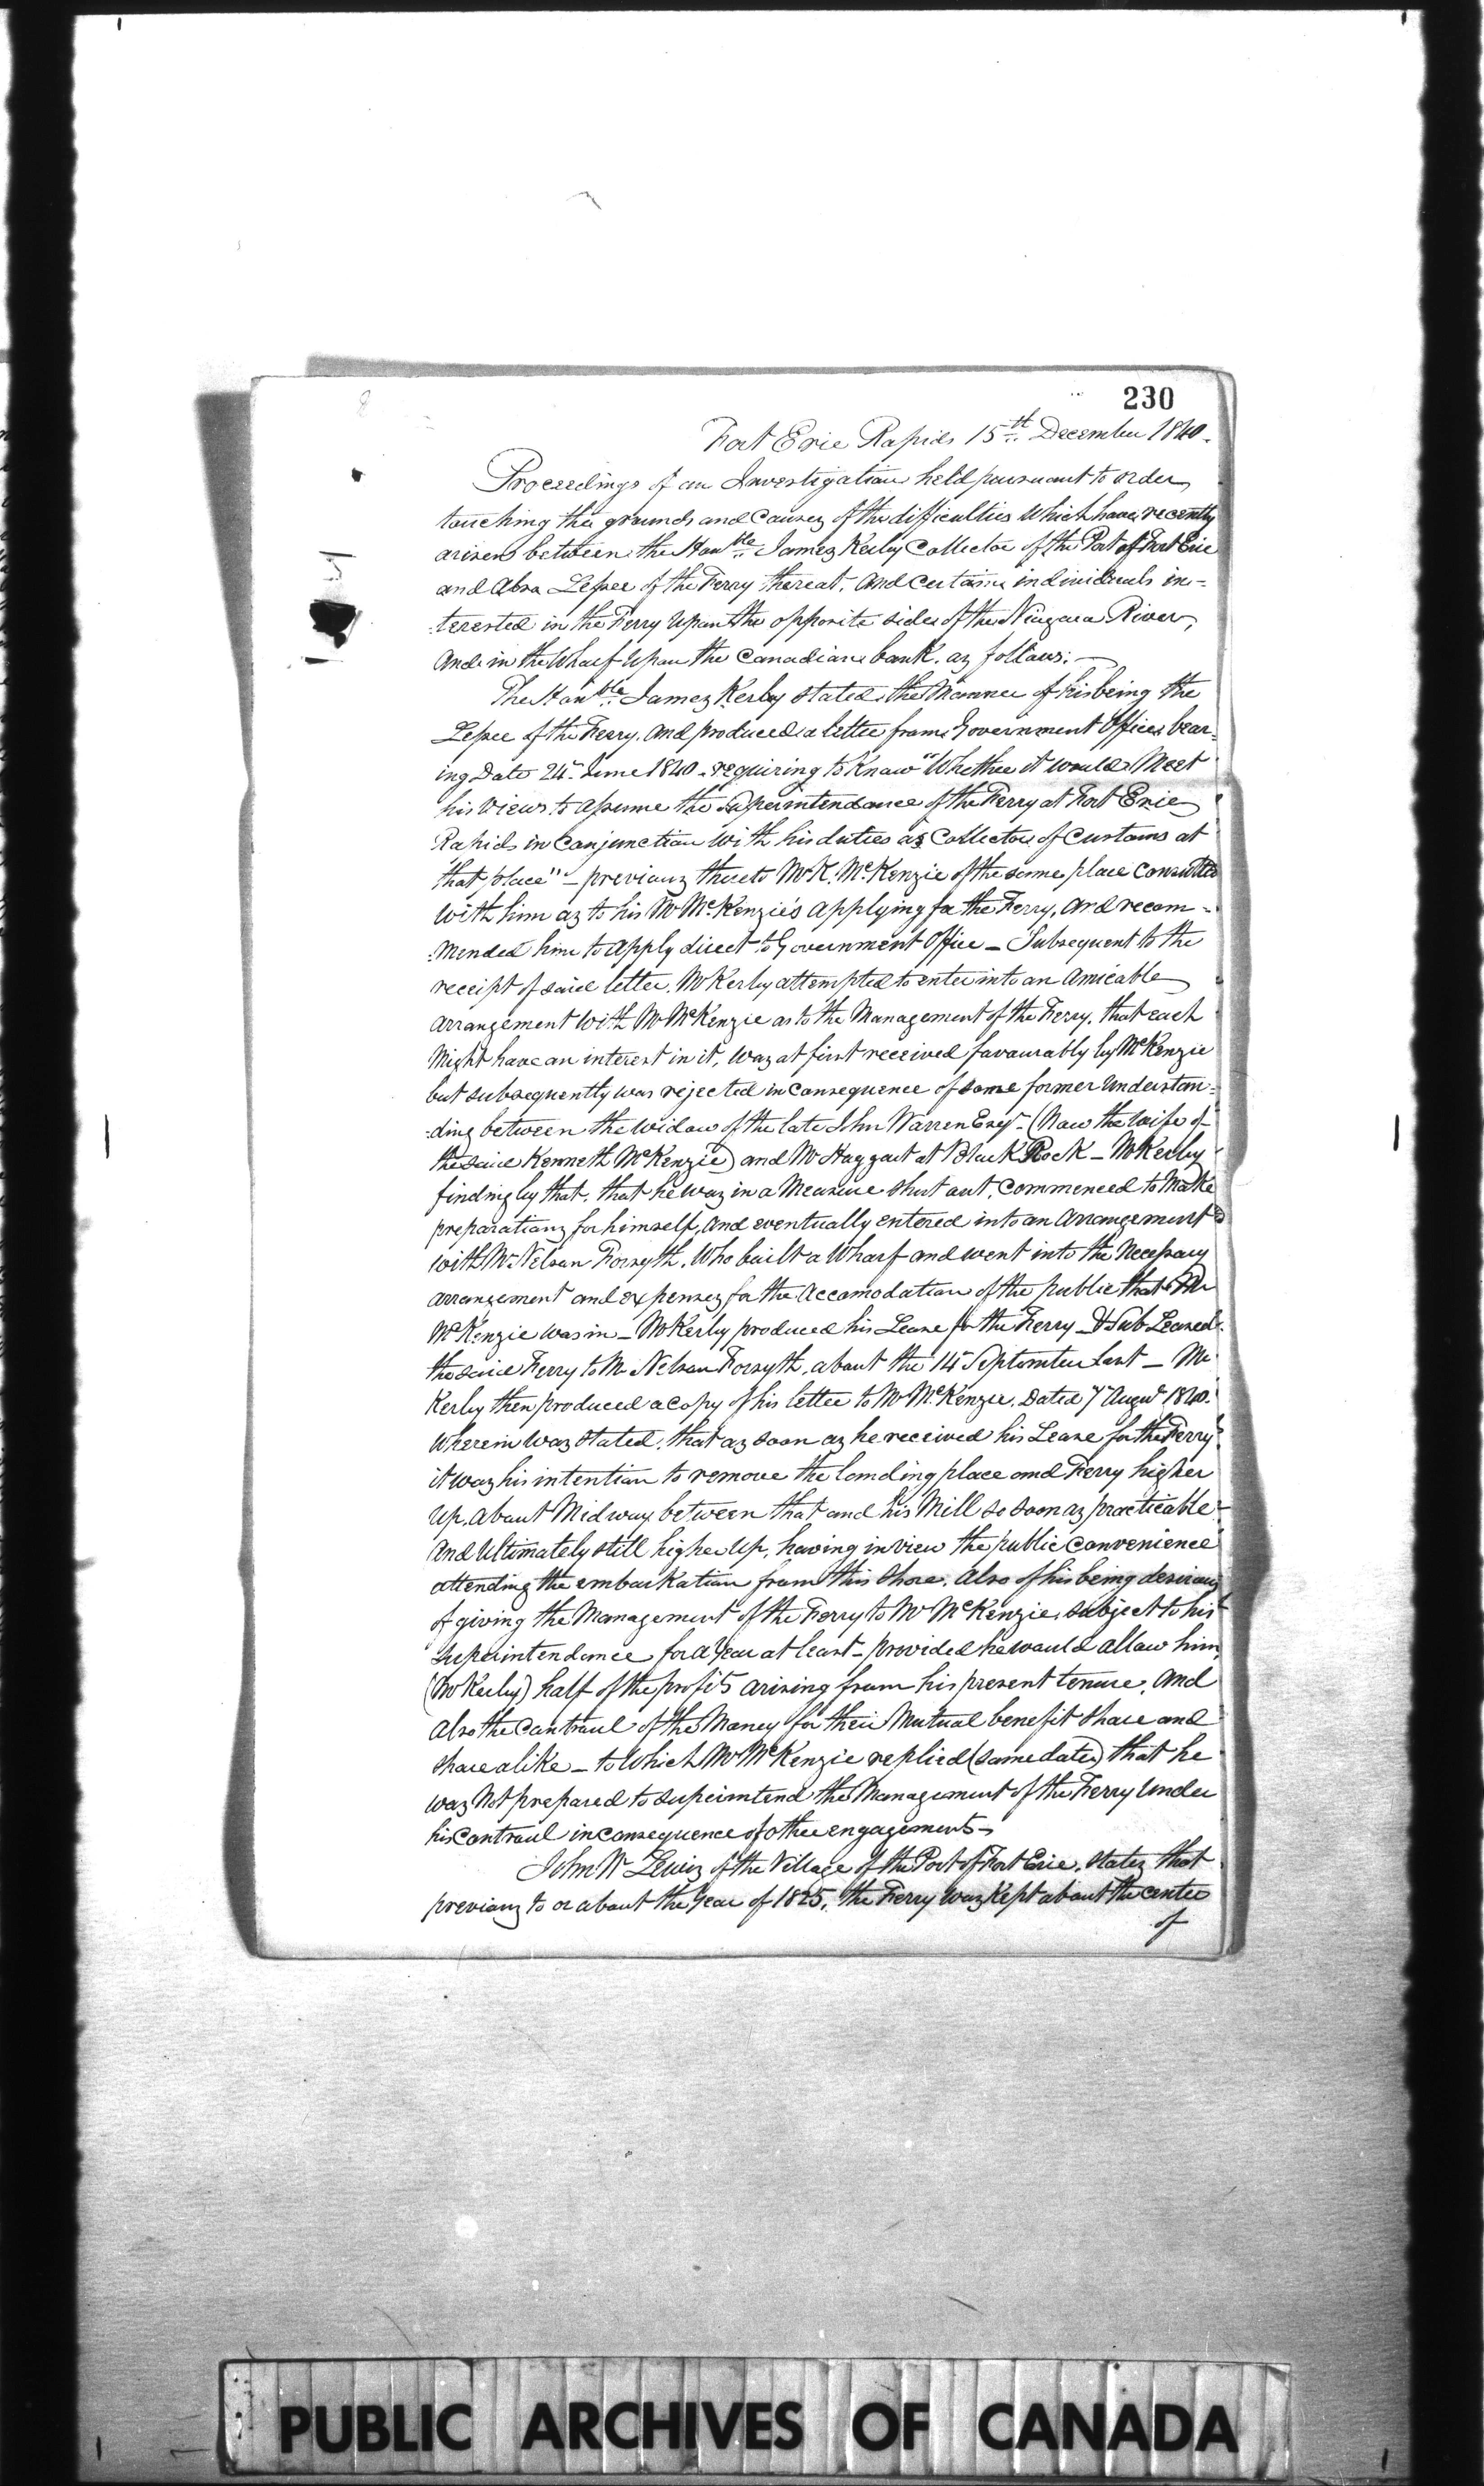 230
Fort Erie Rapids 15th December 1840.
Proceedings of an Investigation held pursuant to order
touching the grounds and Causes of the difficulties which have recently
arisen between the Honble James Kerby Collector of the Port of Fort Erie
and also Lessee of the Ferry thereat, and Certain individuals in-
-terested in the Ferry upon the opposite sides of the Niagara River,
and in the Wharf upon the Canadian bank, as follows: —
The Honble James Kerby stated the Manner of his being the
Lessee of the Ferry, and produced a letter from Government Office, bear-
ing Date 24th June 1840 - requiring to Know "Whether it would Meet
his views to assume the Superintendance of the Ferry at Fort Erie
Rapids in Conjunction with his duties as Collector of Customs at
that place" – previous thereto Mr K. McKenzie of the same place Consulted
with him as to his Mr McKenzie's applying for the Ferry, and recom-
-mended him to apply direct to Government Office – Subsequent to the
receipt of said letter, Mr Kerby attempted to enter into an Amicable
arrangement with Mr McKenzie as to the Management of the Ferry, that each
Might have an interest in it, was at first received favourably by McKenzie
but subsequently was rejected in Consequence of some former Understan-
-ding between the widow of the late John Warren Esqr - (Now the Wife of
the said Kenneth McKenzie) and Mr Haggart at Black Rock – Mr Kerby
finding by that, that he was in a Measure shut out, Commenced to Make
preparations for himself, and eventually entered into an Arrangement
with Mr Nelson Forsyth, Who built a Wharf and went into the Necessary
arrangement and expenses for the Accomodation of the public that Mr
McKenzie was in – Mr Kerby produced his Lease for the Ferry – & Sub Leased
the said Ferry to Mr Nelson Forsyth, about the 14th September last – Mr
Kerby then produced a Copy of his letter to Mr McKenzie, Dated 7th Augst 1840.
Wherein was stated, that as soon as he received his Lease for the Ferry
it was his intention to remove the landing place and Ferry higher
up, about Midway between that and his Mill so soon as practicable –
And Ultimately still higher up, having in view the public Convenience
attending the embarkation from this shore, also of his being desirous
of giving the Management of the Ferry to Mr McKenzie, subject to his
superintendance for a Year at least – provided he would allow him
(Mr Kerby) half of the profits arising from his present tenure, and
also the Controul of the Money for their Mutual benefit share and
share alike – to Which Mr McKenzie replied (same date) that he
was Not prepared to superintend the Management of the Ferry Under
his Controul in Consequence of other engagements –
John W Lewis of the Village of the Port of Fort Erie, states that
previous to or about the Year of 1825, the Ferry was Kept about the center
of
PUBLIC ARCHIVES OF CANADA